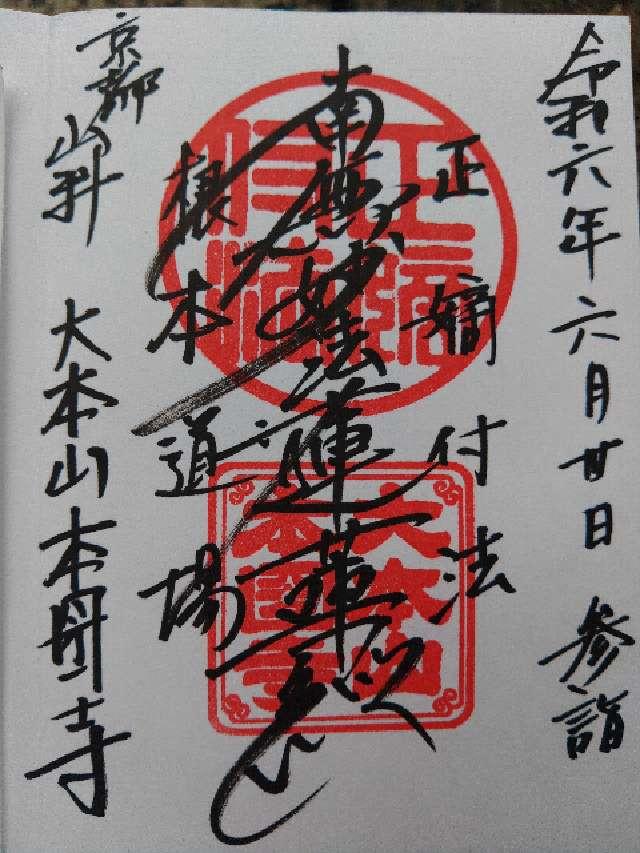 令和六年六月廿日 参詣
正嫡付法
南無妙法蓮華経
根本道場
京都山科 大本山本圀寺
大本山
本圀寺